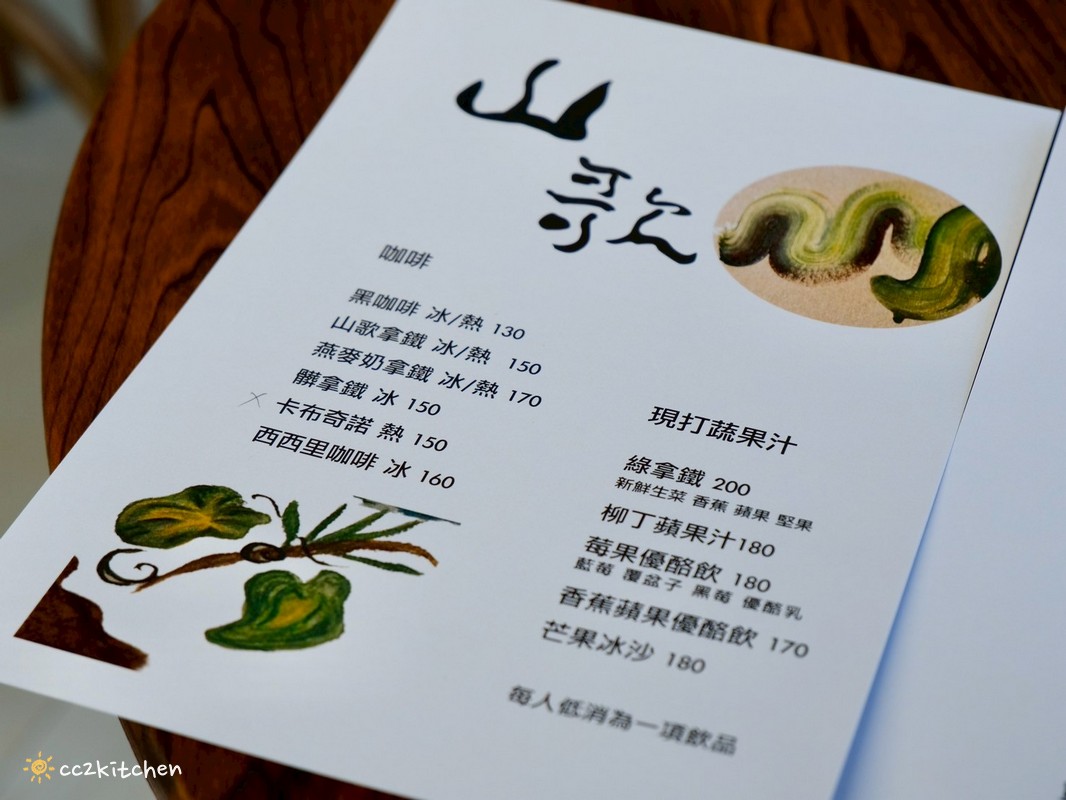 山
歌
咖啡
黑咖啡 冰/熱 130
山歌拿鐵 冰/熱 150
燕麥奶拿鐵 冰/熱 170
髒拿鐵 冰 150
× 卡布奇諾 熱 150
西西里咖啡 冰 160
現打蔬果汁
綠拿鐵 200
新鮮生菜 香蕉 蘋果 堅果
柳丁蘋果汁180
莓果優酪飲 180
藍莓 覆盆子 黑莓 優酪乳
香蕉蘋果優酪飲 170
芒果冰沙 180
每人低消為一項飲品
cc2kitchen